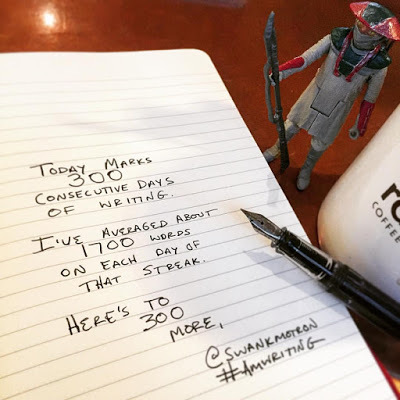 TODAY MARKS
300
CONSECUTIVE DAYS
OF WRITING.
I'VE AVERAGED ABOUT
1700 WORDS
ON EACH DAY OF
THAT STREAK.
HERE'S TO
300
MORE,
@SWANKMOTRON
#AMWRITING
COFFEE